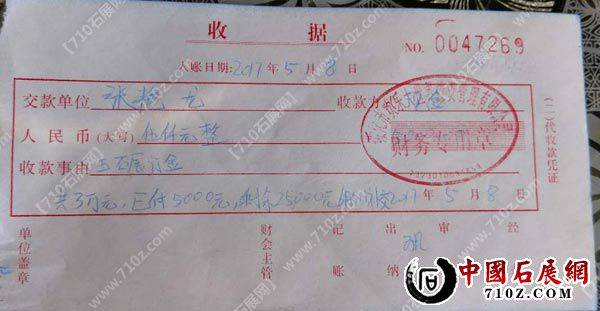 收 据
NO. 0047269
入账日期:2017年5月8日
交款单位 张艳龙 收款方 现金
人民币(大写) 伍仟元整
收款事由 玉石展订金
共3万元,已付5000元,剩余25000元 2017年5月8日
财务专用章
(二)代收款凭证
单位盖章 财会主管 记账 出纳 审 经
【710石展网】
www.710z.com
中國石展網
710Z.COM